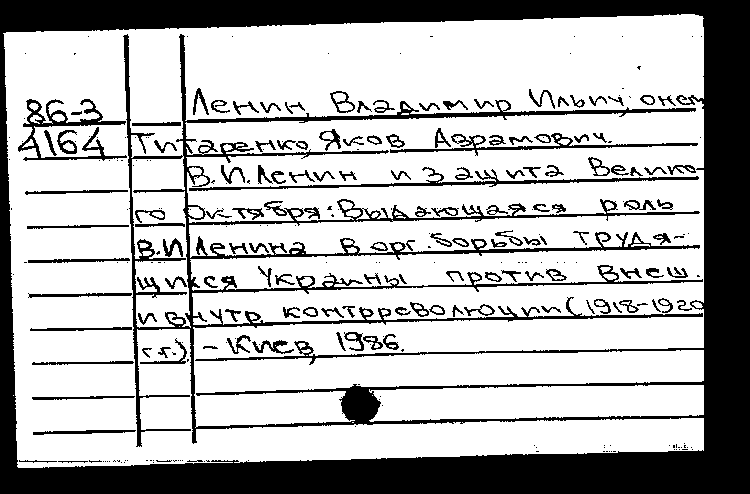 86-3 Ленин, Владимир Ильич, о нем
4164 Титаренко, Яков Аврамович.
В.И.Ленин и защита Велико-
го Октября: Выдающаяся роль
В.И Ленина в орг. борьбы трудя-
щихся Украины против внеш.
и внутр контрреволюции (1918-1920
г.г.) - Киев, 1986.